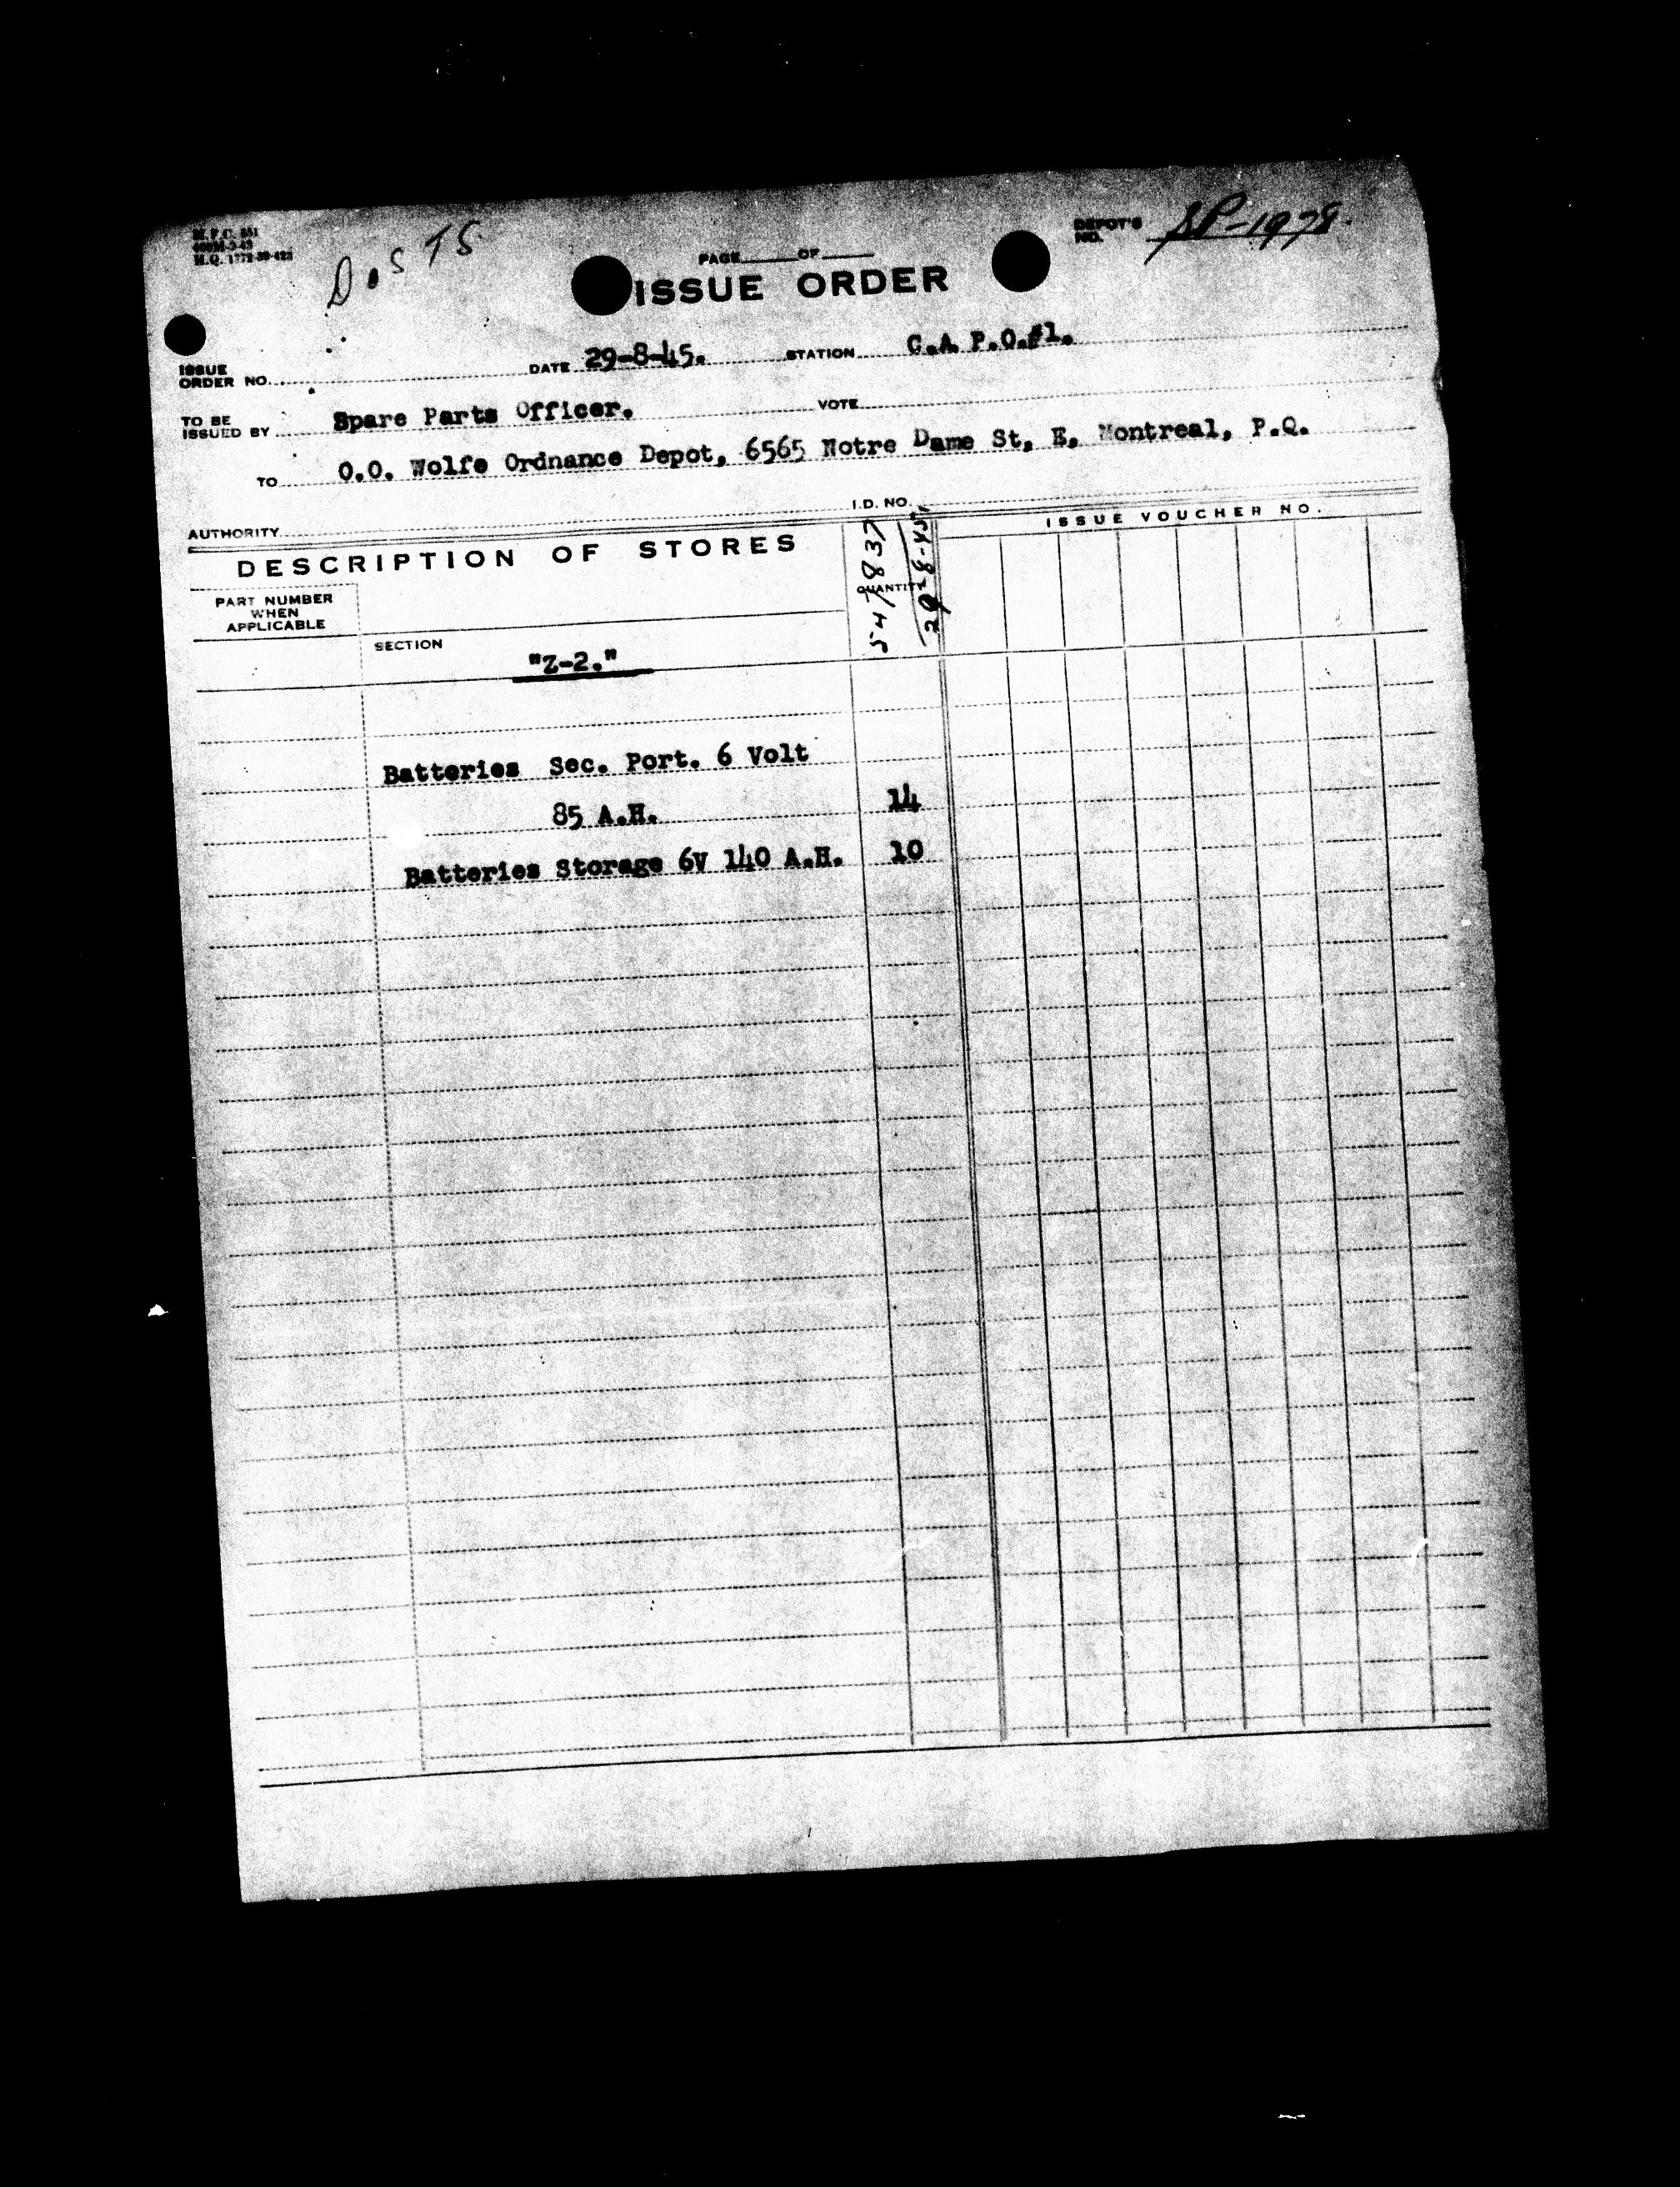 M.F.C. 851
400M-3-43
H.Q. 1772-39-423
D.S T S
DEPOT'S NO. SP-1978.
PAGE OF
ISSUE ORDER
ISSUE ORDER NO. DATE 29-8-45. STATION C.A. P.O.#1.
TO BE ISSUED BY Spare Parts Officer. VOTE
TO O.O. Wolfe Ordnance Depot, 6565 Notre Dame St, E, Montreal, P.Q.
AUTHORITY I.D. NO.
DESCRIPTION OF STORES
ISSUE VOUCHER NO.
PART NUMBER
WHEN
APPLICABLE
QUANTITY
547837
29-8-45
SECTION
"Z-2."
Batteries Sec. Port. 6 Volt
85 A.H. 14
Batteries Storage 6V 140 A.H. 10